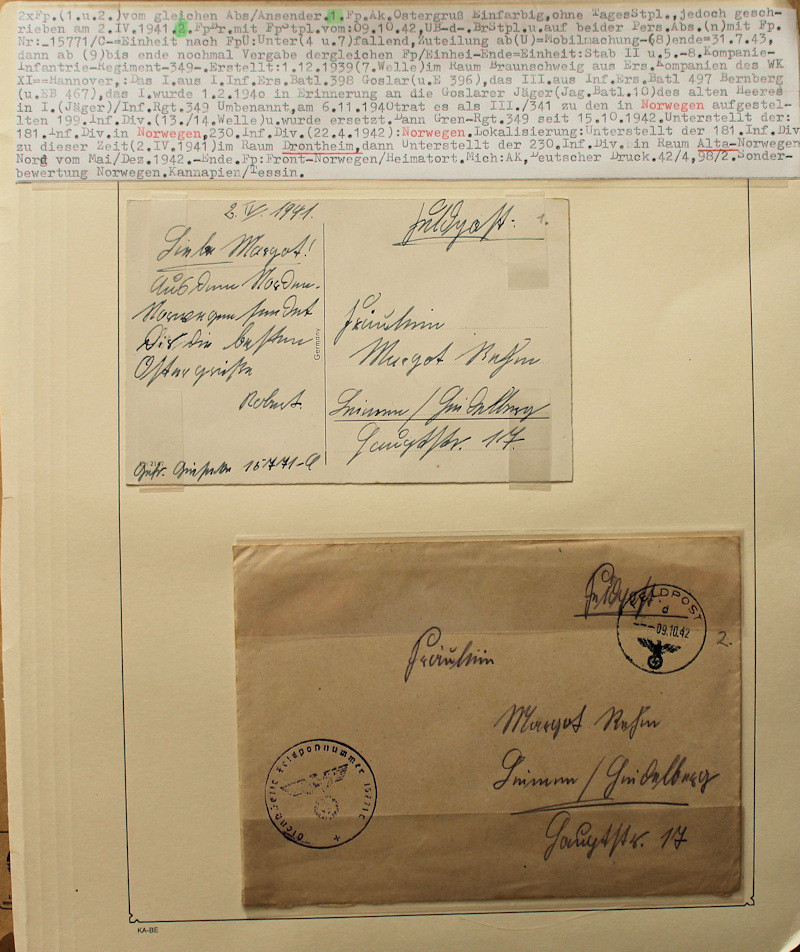 2xFp.(1.u.2.)vom gleichen Abs/Ansender.1.Fp.Ak.Ostergruß Einfarbig,ohne TagesStpl.,jedoch gesch-
rieben am 2.IV.1941.2.FpBr.mit FpStpl.vom:09.10.42,UB-d-.BrStpl.u.auf beider Fers.Abs.(n)mit Fp.
Nr:_15771/C-=Einheit nach FpÜ:Unter(4 u.7)fallend,Zuteilung ab(Ü)=Mobilmachung-(8)ende=31.7.43,
dann ab (9)bis ende nochmal Vergabe dergleichen Fp/Einhei-Ende=Einheit:Stab II u.5.-8.Kompanie-
Infantrie-Regiment-349-.Erstellt:1.12.1939(7.Welle)im Raum Braunschweig aus Ers.Kompanien des WK
XI==Hannover.:Das I.aus I.Inf.Ers.Batl.398 Goslar(u.E 396),das III.aus Inf.Ers.Batl 497 Bernberg
(u.EB 467),das I.wurde 1.2.1940 in Erinnerung an die Goslarer Jäger(Jag.Batl.10)des alten Heeres
in I.(Jäger)/Inf.Rgt.349 Umbenannt,am 6.11.1940trat es als III./341 zu den in Norwegen aufgestel-
lten 199.Inf.Div.(13./14.Welle)u.wurde ersetzt.Dann Gren-Rgt.349 seit 15.10.1942.Unterstellt der:
181.Inf.Div.in Norwegen,230.Inf.Div.(22.4.1942):Norwegen.Lokalisierung:Unterstellt der 181.Inf.Div
zu dieser Zeit(2.IV.1941)im Raum Drontheim,dann Unterstellt der 230.Inf.Div.in Raum Alta-Norwegen
Nord vom Mai/Dez.1942.-Ende.Fp:Front-Norwegen/Heimatort.Mich:AK,Deutscher Druck.42/4,98/2.Sonder-
bewertung Norwegen.Kannapien/Tessin.
2. IV. 1941.
Liebe Margot!
Aus dem Norden
Norwegens sendet
Dir die besten
Ostergrüße
Robert.
Gefr. 15771-C
Germany
Feldpost.
1.
Fräulein
Margot Rehm
Leimen / Heidelberg
Hauptstr. 17.
Feldpost.
FELDPOST
d
09.10.42
2.
Fräulein
Margot Rehm
Leimen / Heidelberg
Hauptstr. 17
Dienststelle Feldpostnummer 15771C
KA-BE